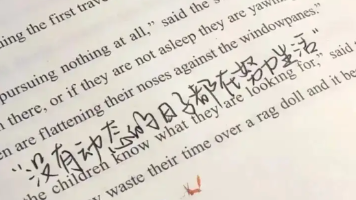 ing the first trave
pursuing nothing at all,” said the s
n there, or if they are not asleep they are yawnin
en are flattening their noses against the windowpanes.”
“没有动态的日子都在努力生活”
the children know what they are looking for,” said
y waste their time over a rag doll and it be